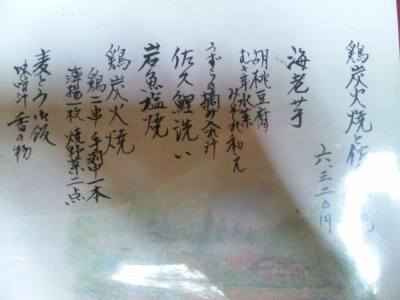 鶏炭火焼と佐
六、三二〇円
海老芋
胡桃豆腐
むき羊水菜
みぞれ和え
うずらの摘み入れ汁
佐久鯉洗い
岩魚塩焼
鶏炭火焼
鶏二串 手羽一本
薄揚一枚 焼野菜二点
麦とろ御飯
味噌汁 香の物